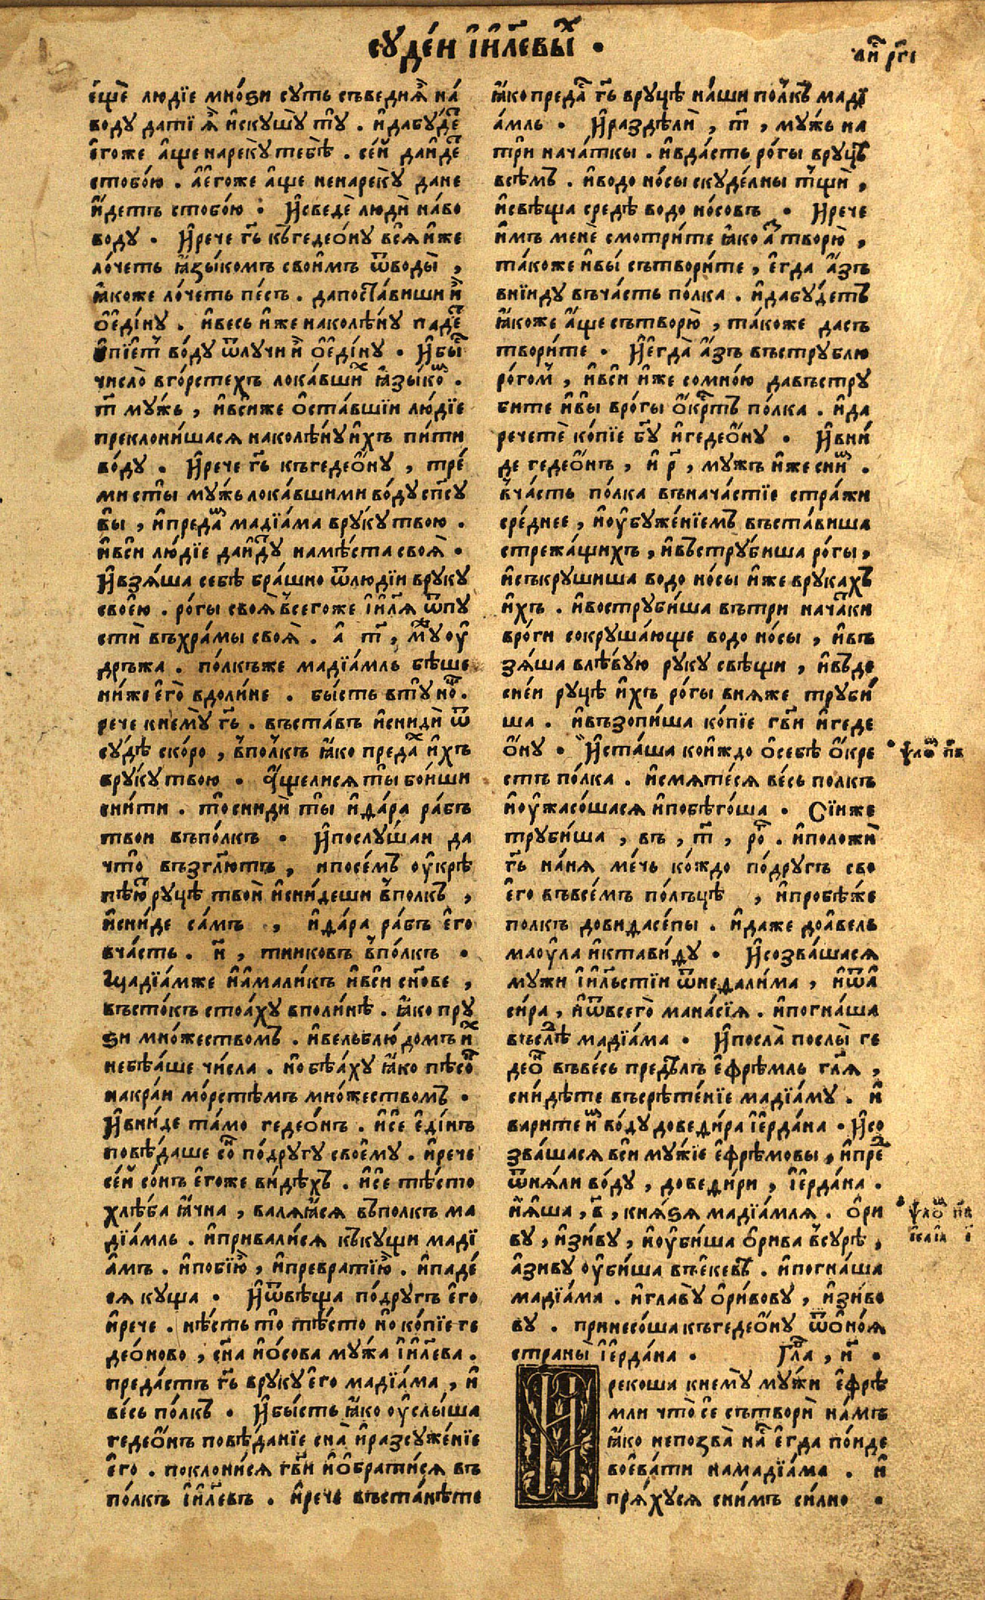 еуде́и і҆и҃левы҄х .
ли҄с рг҃і
е҆щѐ лю́дїе мно́ѕи суть съведи ꙗ҆̀ на́
воду дати́ ꙗ҆̀ искушу̀ ту̀ . и҆дабу́де҄т
е҆го́же а҆́ще нареку́ тебѣ̀ . се́й даи́де҄т
стобо́ю . ае҆го́же а҆́ще ненареку̀ дане
и҆́детъ стобо́ю . И҆сведѐ лю́ди на́во
воду . И҆рече гь҃ къгедео́ну вси и҆́же
ло́четь ꙗ҆зы́комъ свои́мъ ѿводы̀ ,
ꙗ҆́коже ло́четь пе́съ . дапоста́виши и҆̀
ѻ҆еди́ну . и҆весь и҆́же наколѣ́ну паде҄т
пїе҄т во́ду ѿлучи и҆̀ ѻ҆еди́ну . И҆бы҄с
число̀ вго́рстехъ лока́вши҄х ꙗ҆зы́ко҄м .
т҃ му́жь , и҆всиже ѻ҆ста́вшїи лю́дїе
преклони́шася наколѣ́ну и҆́хъ пи́ти
во́ду . И҆рече гь҃ къгедео́ну , тре́
ми сты́ мужь лока́вшими во́ду сп҃су
вы̀ , и҆преда҄м мадїа́ма вруку твою .
и҆вси лю́дїе даи́ду намѣ́ста своя̀ .
И҆взя́ша себѣ̀ бра́шно ѿлюдїи вруку
свое́ю . ро́гы своя̀ всегоже і҆и҃ля ѿпу
стѝ въхра́мы своя̀ . а҆ т҃ , мꙋ҄ж оу҆
дръжа . по́лкъже мадїа́мль бѣ́ше
ни́же е҆го̀ вдоли́не . бы́сть вту̀ но҄щ .
рече кнему̀ гь҃ . въста́въ и҆снидѝ ѿ
су́дѣ ско́ро , вполкъ ꙗ҆́ко преда҄х и҆́хъ
вруку твою . а҆́щелися ты̀ бои́ши
сни́ти . то̀ снидѝ ты̀ и҆да́ра ра́бъ
твои въпо́лкъ . И҆послу́шаи да
что̀ възгл҃ютъ , ипосе́мъ оу҆крѣ
пѣю҄т руцѣ твоѝ и҆сни́деши вполкъ ,
и҆сни́де са́мъ , и҆да́ра ра́бъ е҆го
вча́сть . н҃ , тниковъ вполкъ .
Мадїа́мже и҆а҆мали́къ и҆вси сн҃ове ,
въсто́къ стоа́ху вполи́нѣ . ꙗ҆́ко пру́
ѕи мно́жествомъ . и҆вельблю́домъ и҄х
небѣ́аше числа̀ . но бѣ́аху ꙗ҆́ко пѣсо҄к
накра́и мо́рстѣмъ мно́жествомъ .
И҆вни́де та́мо гедео́нъ . и҆се е҆ди́нъ
повѣ́даше со҄н по́другу своему . и҆рече
се́й со́нъ е҆го́же ви́дѣхъ . и҆се тѣ́сто
хлѣ́ба ꙗ҆́чна , валя́ꙗся въполкъ ма
дїа́мль . и҆привали́ся къку́щи мадї
а҆́мъ . и҆поби́ю̀ , и҆преврати́ю̀ . и҆паде́
ся куща . И҆ѿвѣ́ща по́другъ е҆го
и҆рече . нѣ́сть то̀ тѣ́сто но ко́пїе ге
део́ново , сн҃а и҆о҆́сова му́жа і҆и҃лева .
преда́стъ гь҃ вруку е҆го мадїа́ма , и҆
ве́сь полкъ . И҆бы́сть ꙗ҆́ко оу҆слы́ша
гедео́нъ повѣ́данїе сна̀ и҆разсуже́нїе
е҆го̀ . поклони́ся гв҃и и҆ѻ҆брати́ся въ
по́лкъ і҆и҃левъ . и҆рече въста́нѣте
ꙗ҆́ко преда҄ст гь҃ вруцѣ на́ши по́лкъ мадї
а́мль . И҆раздѣлѝ , т҃ , му́жь на
три нача́ткы . и҆вда́сть ро́гы вруцѣ
всѣ́мъ . и҆водо но́сы скуде́лны тщѝ ,
и҆свѣ́ща средѣ водо но́совъ . И҆рече
и҆́мъ менѐ смотри́те ꙗ҆́ко а҆҄з творю̀ ,
та́коже и҆вы́ сътвори́те , е҆гда а҆́зъ
вни́иду въча́сть по́лка . и҆дабу́детъ
ꙗ҆́коже а҆́ще сътворю̀ , та́коже дасъ
твори́те . И҆егда̀ а҆́зъ въстру́блю
ро́гомъ , и҆вси и҆́же сомно́ю давъстру
бите и҆вы̀ вро́гы ѻ҆́кртъ по́лка . и҆да
рече́тѐ ко́пїе бг҃у и҆гедео́ну . И҆вни́
де гедео́нъ , и҆ р҃ , му́жъ и҆́же сни҄м .
вча́сть по́лка въначастїе стра́жи
сре́днее , и҆оу҆буже́нїемъ въста́виша
стрежа́щихъ , и҆въструби́ша ро́гы ,
и҆съкруши́ша водо но́сы и҆́же врука́хъ
и҆́хъ . и҆воструби́ша въ́три нача҄тки
вро́ги сокруша́юще водо но́сы , и҆въ
зя́ша влѣвую руку свѣщи , и҆въде
сне́и руцѣ и҆́хъ ро́гы вняже труби́
ша . и҆възопи́ша ко́пїе гв҃и и҆геде
ѻ҆́ну . И҆ста́ша ко́иждо ѻ҆себѣ̀ ѻ҆́кре
стъ по́лка . и҆смяте́ся ве́сь полкъ
и҆оу҆жасо́шася и҆побѣго́ша . Сїи́же
труби́ша , въ , т҃ , ро҄г . и҆положѝ
гь҃ на́ня ме́чь ко́ждо по́другъ сво
е҆го въвсе́мъ по́лъцѣ , и҆пробѣ́же
полкъ довидасе́пы . и҆да́же доа҆вель
маоу́ла и҆ктави́ду . И҆созва́шася
му́жи і҆и҃льстїи ѿнедали́ма , и҆ѿа҆
си́ра , и҆ѿвсего̀ мана́сїя . и҆погна́ша
въслѣ̀ мадїа́ма . И҆посла̀ послы̀ ге
део҄н въве́сь предѣлъ е҆фре́мль гл҃я ,
сни́дѣте въсрѣ́тенїе мадїа́му . и҆
варите и҄м во́ду доведи́ра і҆е҆рда́на . И҆со
зва́шася вси му́жїе е҆фре́мовы , и҆пре҄д
ѿня́ли во́ду , доведи́ри , і҆е҆рда́на .
и҆я҆́ша , в҃ , кня́ѕя мадїа́мля . ѻ҆ри
ву , и҆зи́ву , и҆оу҆би́ша ѻ҆́рива всурѣ ,
а҆зи́ву оу҆би́ша въекевъ . и҆погна́ша
мадїа́ма . и҆главу ѻ҆ри́вову , и҆зи́во
ву . принесо́ша къгедео́ну ѿѻ҆но́я
страны̀ і҆е҆рда́на . Гл҃а , и҃ .
И рекоша кнему̀ му́жи е҆фре
мли что́ сѐ сътворѝ на́мъ
ꙗ҆́ко непозва̀ на҄с е҆гда по́иде
воева́ти намадїа́ма . и҆
пря́хуся сни́мъ си́лно .
ѱало҄м п҃в
ѱало҄м п҃в
і҆са́їа і҃